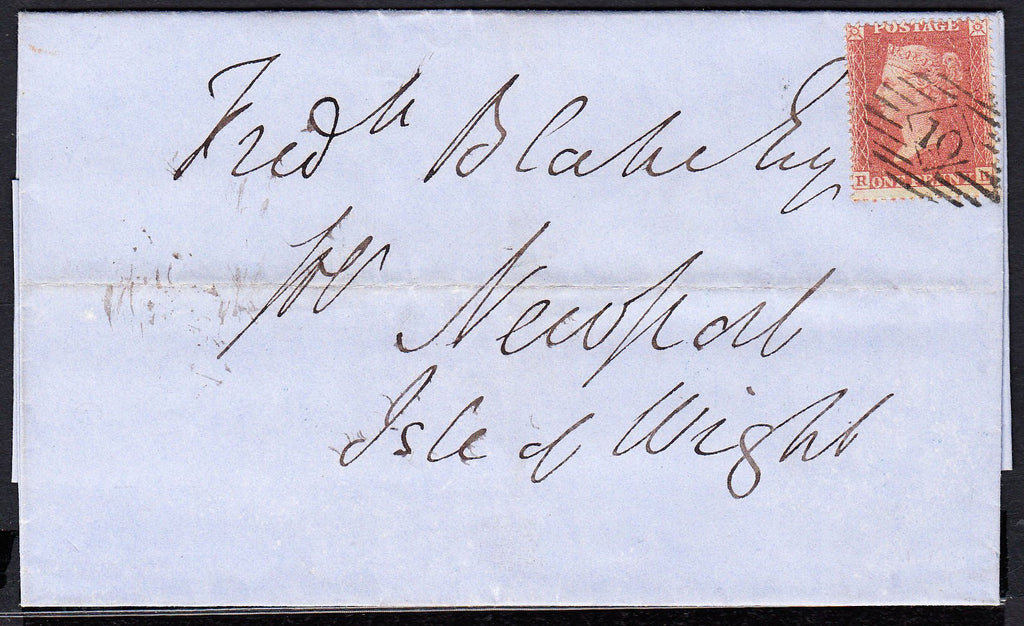 Fredk Blake Esq
Newport
Isle of Wight
POSTAGE
12
R ONE PENNY